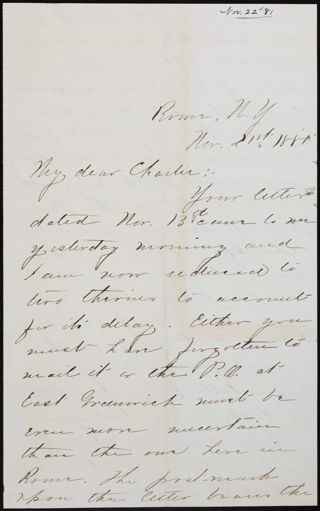 Nov. 22 '81
Rome, N.Y
Nov. 21st 1881
My dear Charlie:-
Your letter
dated Nov. 13th came to me
yesterday morning and
I am now reduced to
two theories to account
for its delay. Either you
must have forgotten to
mail it or the P.O. at
East Greenwich must be
even more uncertain
than the one here in
Rome. The post-mark
upon the letter bears the